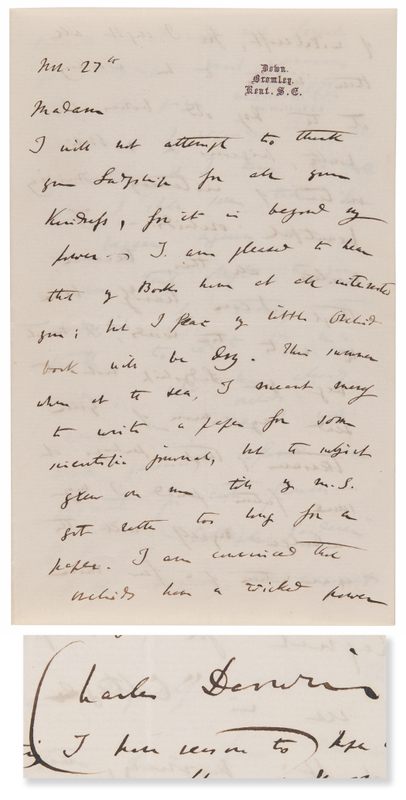 Down.
Bromley.
Kent. S.E.
Nov. 27th
Madam
I will not attempt to thank
your Ladyship for all your
kindness, for it is beyond my
power. I am pleased to hear
that my Books have at all interested
you; but I fear my little Orchid
book will be dry. This summer
when at the sea, I meant merely
to write a paper for some
scientific journal, but the subject
grew on me till my M.S.
got rather too long for a
paper. I am convinced that
Orchids have a wicked power
Charles Darwin
I have reason to hope